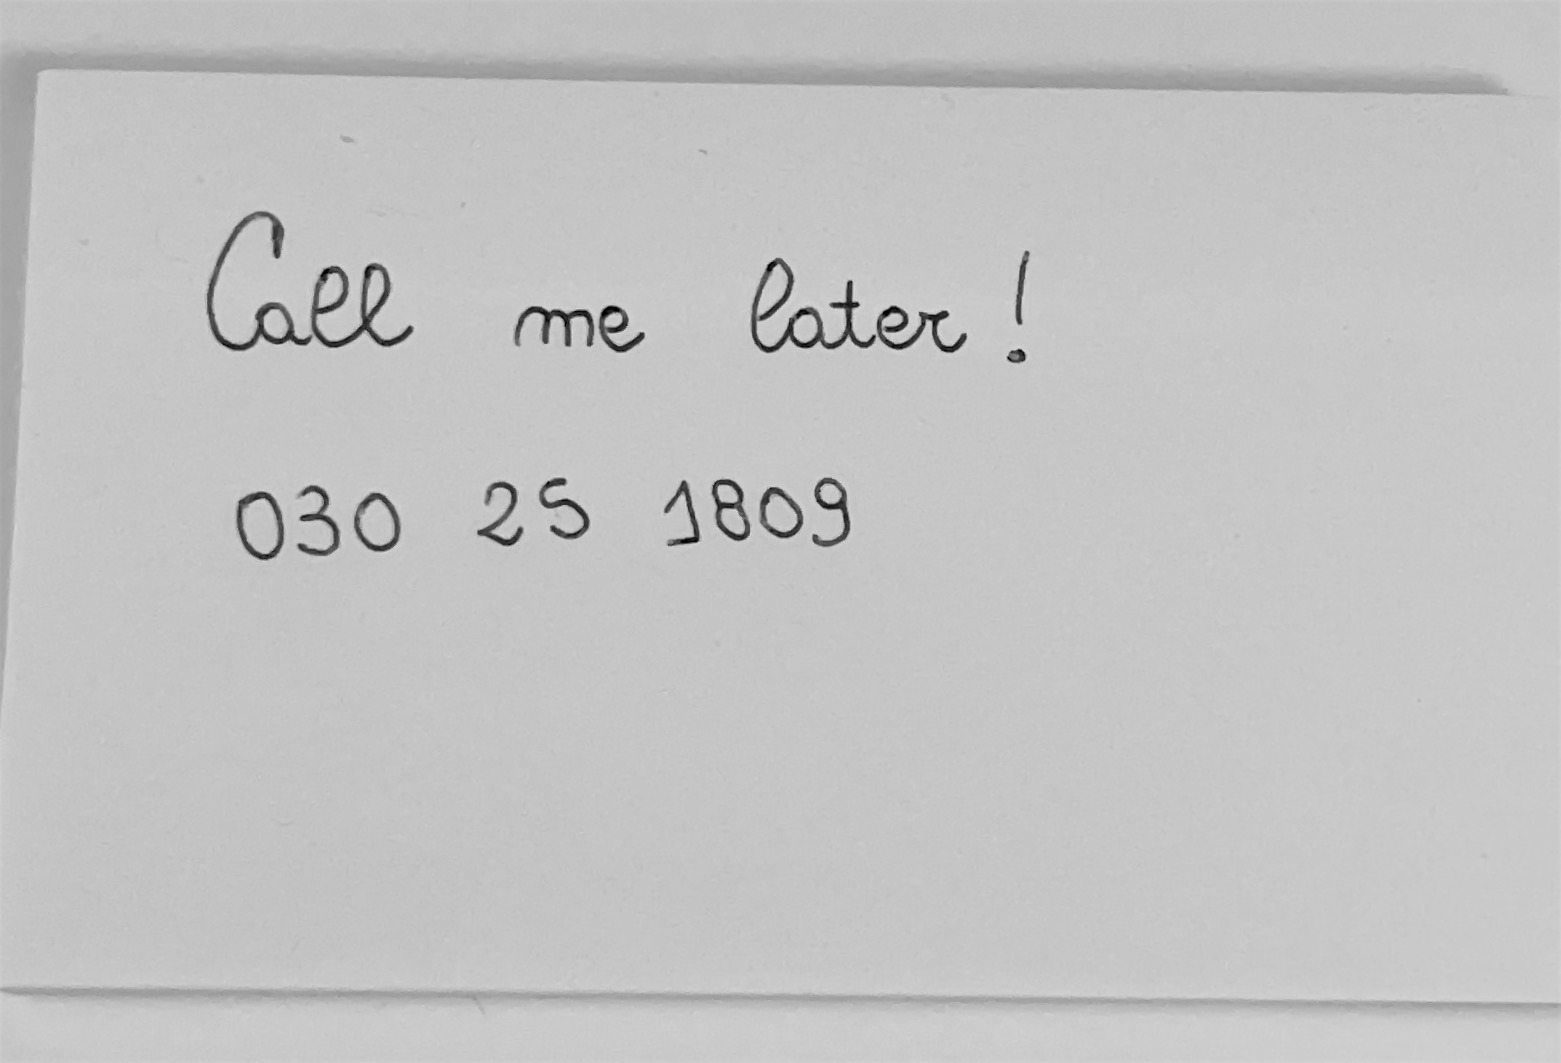 Call me later!
030 25 1809